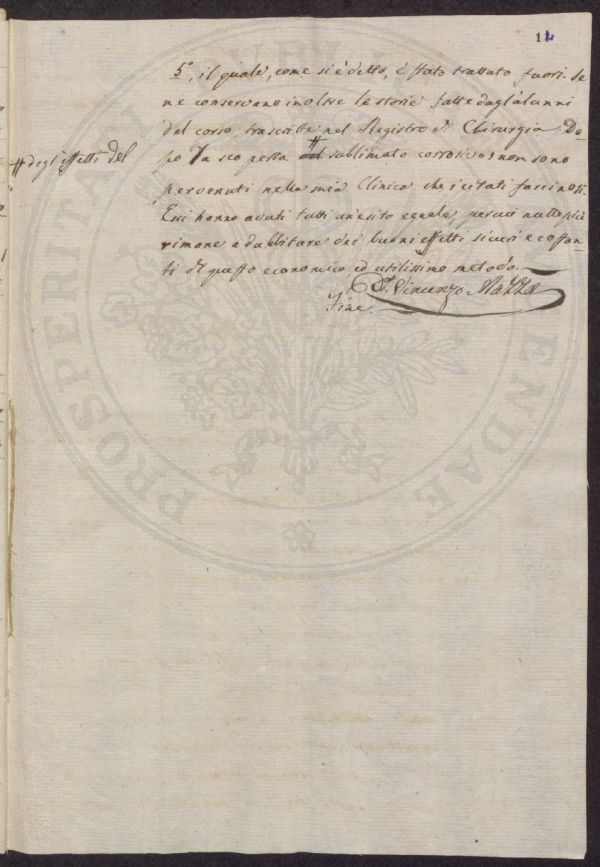 14
5°, il quale, come si è detto, è stato trattato fuori. Se
ne conservano inoltre le storie fatte dagl'alunni
del corso, trascritte nel Registro di Chirurgia. Do-
po la scoperta # sublimato corrosivo, non sono
# degl'effetti del
pervenuti nella mia Clinica che i citati
Essi hanno avuti tutti un'esito eguale, nulla più
rimane a dubbitare dei buoni effetti sicuri e costan-
ti di questo economico ed utilissimo metodo.
D. Vincenzo Mazza
Fine.
PROSPERITATI ENDAE